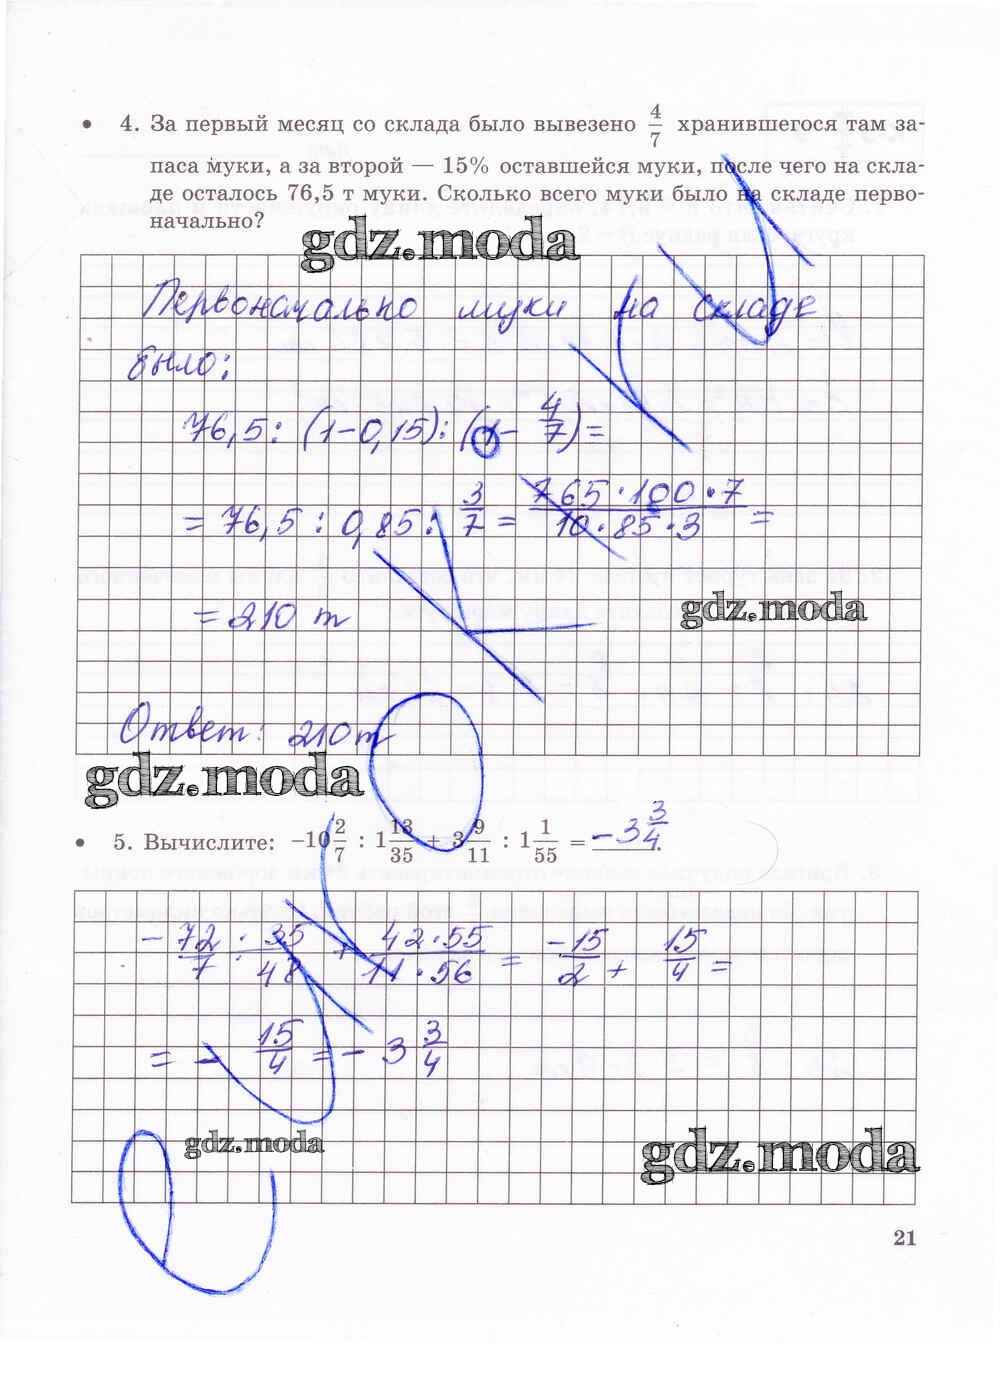 • 4. За первый месяц со склада было вывезено 4/7 хранившегося там за-
паса муки, а за второй — 15% оставшейся муки, после чего на скла-
де осталось 76,5 т муки. Сколько всего муки было на складе перво-
начально?
gdz.moda
Первоначально муки на складе
было:
76,5 : (1-0,15) : (1- 4/7) =
= 76,5 : 0,85 : 3/7 = 765·100·7/10·85·3 =
gdz.moda
= 210 т
Ответ: 210 т
gdz.moda
• 5. Вычислите: −10 2/7 : 1 13/35 + 3 9/11 : 1 1/55 = -3 3/4.
- 72/7 · 35/48 + 42·55/11·56 = -15/2 + 15/4 =
= - 15/4 = - 3 3/4
gdz.moda
gdz.moda
21